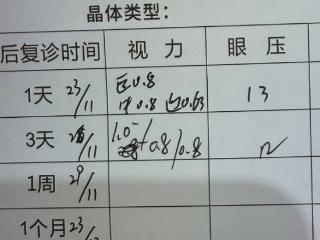 晶体类型：
后复诊时间 视力 眼压
1天 23/11 0.8 0.8 0.63 13
3天 /11 1.0 0.8/0.8
1周 29/11
1个月 23